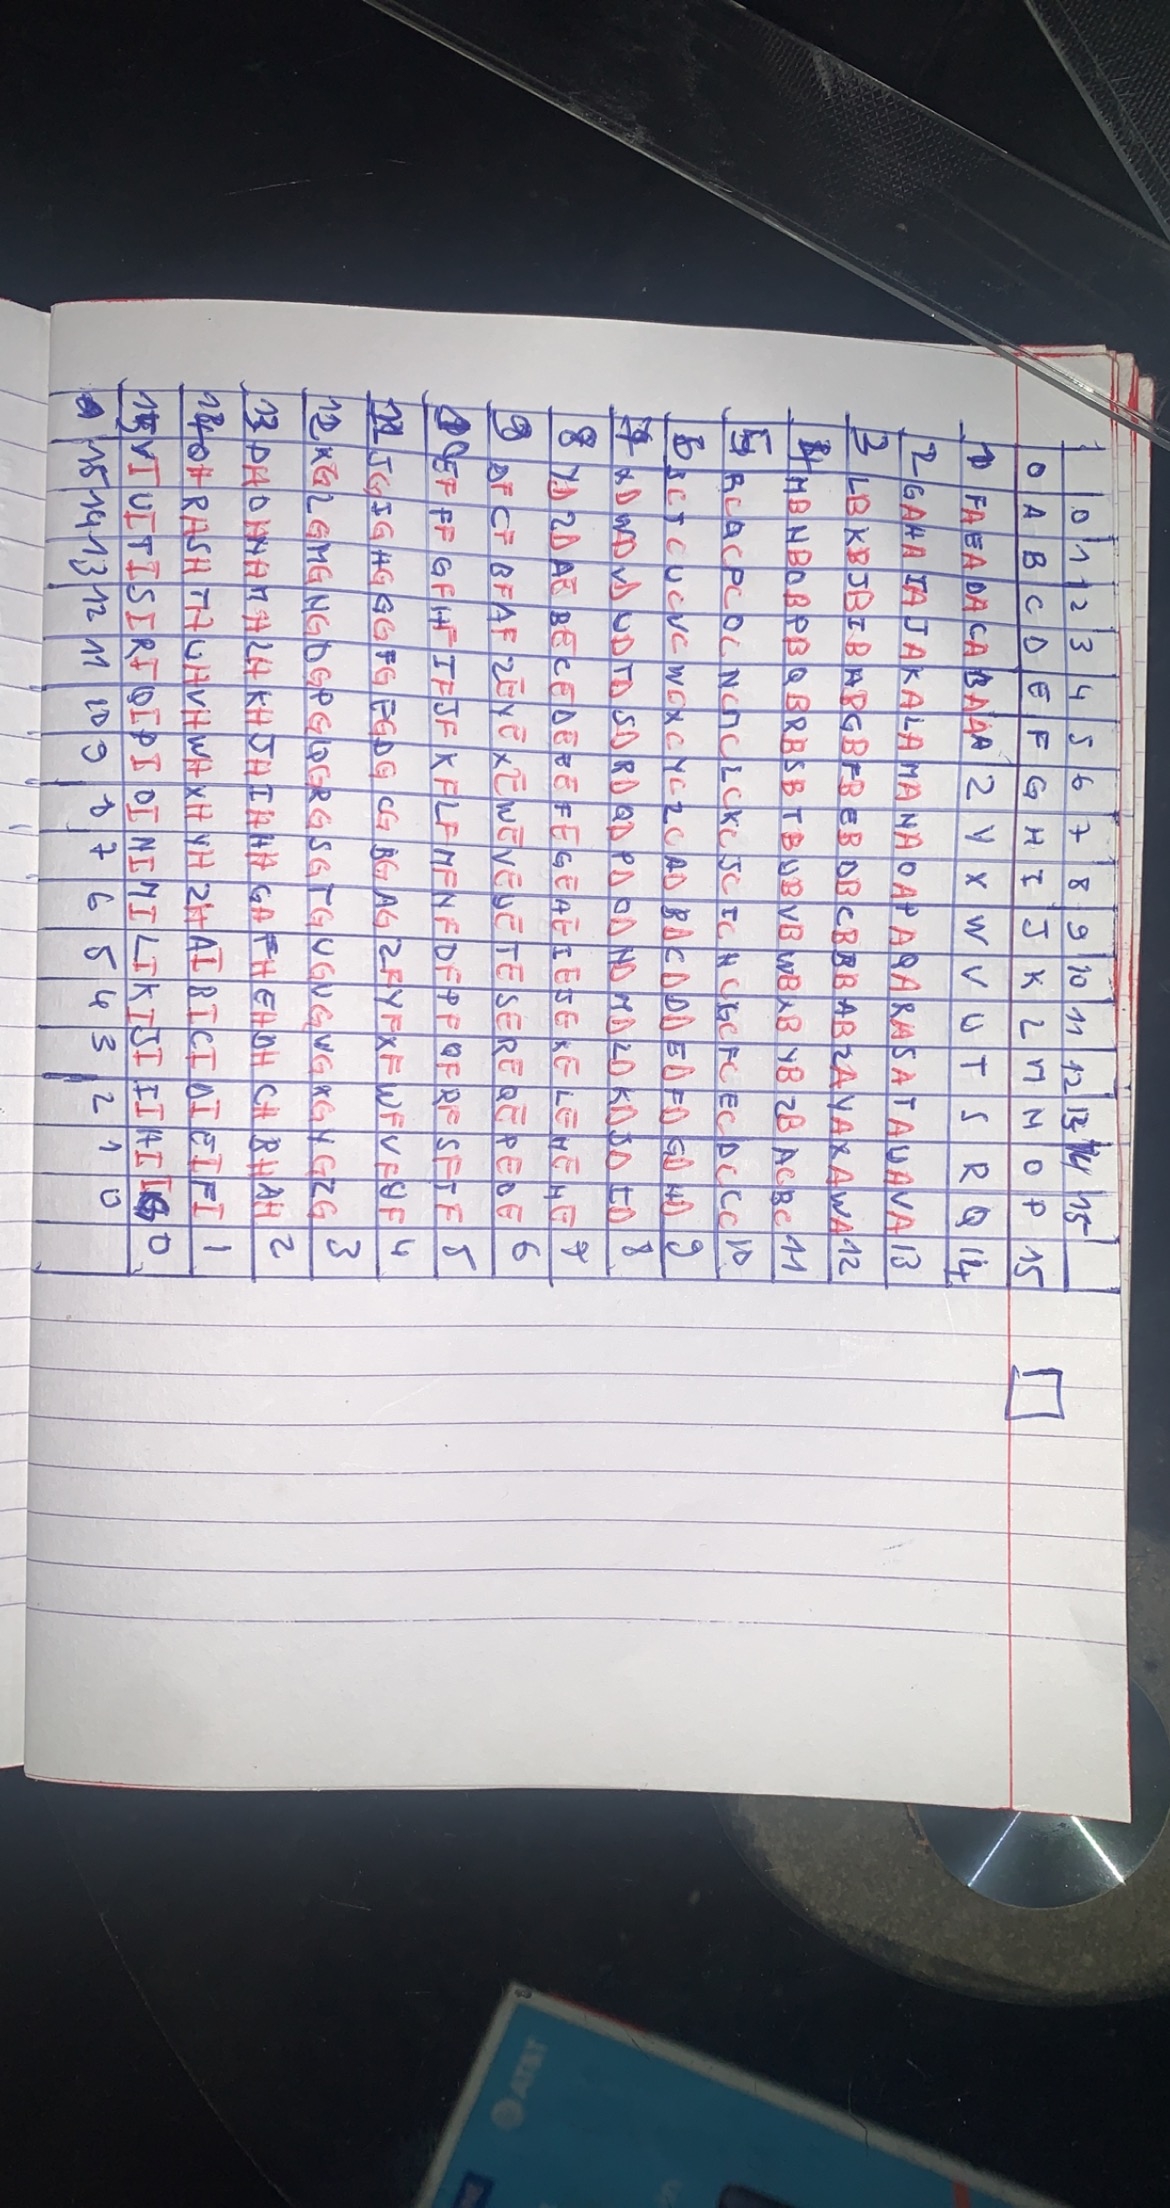 0 1 2 3 4 5 6 7 8 9 10 11 12 13 14 15
0 A B C D E F G H I J K L M N O P 15
1 FA EA DA CA BA AA Z Y X W V U T S R Q 14
2 GA HA IA JA KA LA MA NA OA PA QA RA SA TA UA VA 13
3 LB KB JB IB HB GB FB EB DB CB BB AB ZA YA XA WA 12
4 MB NB OB PB QB RB SB TB UB VB WB XB YB ZB AC BC 11
5 RC QC PC OC NC MC LC KC JC IC HC GC FC EC DC CC 10
6 SC TC UC VC WC XC YC ZC AD BD CD DD ED FD GD HD 9
7 XD WD VD UD TD SD RD QD PD OD ND MD LD KD JD ID 8
8 YD ZD AE BE CE DE EE FE GE HE IE JE KE LE ME NE 7
9 DF CF BF AF ZE YE XE WE VE UE TE SE RE QE PE OE 6
10 EF FF GF HF IF JF KF LF MF NF OF PF QF RF SF TF 5
11 JG IG HG GG FG EG DG CG BG AG ZF YF XF WF VF UF 4
12 KG LG MG NG OG PG QG RG SG TG UG VG WG XG YG ZG 3
13 PH OH NH MH LH KH JH IH HH GH FH EH DH CH BH AH 2
14 QH RH SH TH UH VH WH XH YH ZH AI BI CI DI EI FI 1
15 VI UI TI SI RI QI PI OI NI MI LI KI JI II HI IG 0
15 14 13 12 11 10 9 8 7 6 5 4 3 2 1 0
AT&T